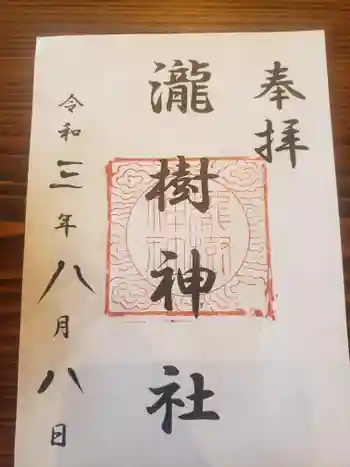 奉拝
瀧樹神社
令和三年八月八日